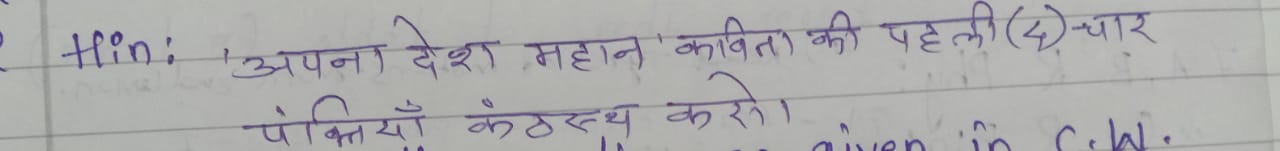 Hin: 'अपना देश महान' कविता की पहली (४) चार
पंक्तियाँ कंठस्थ करो।
given in C.W.